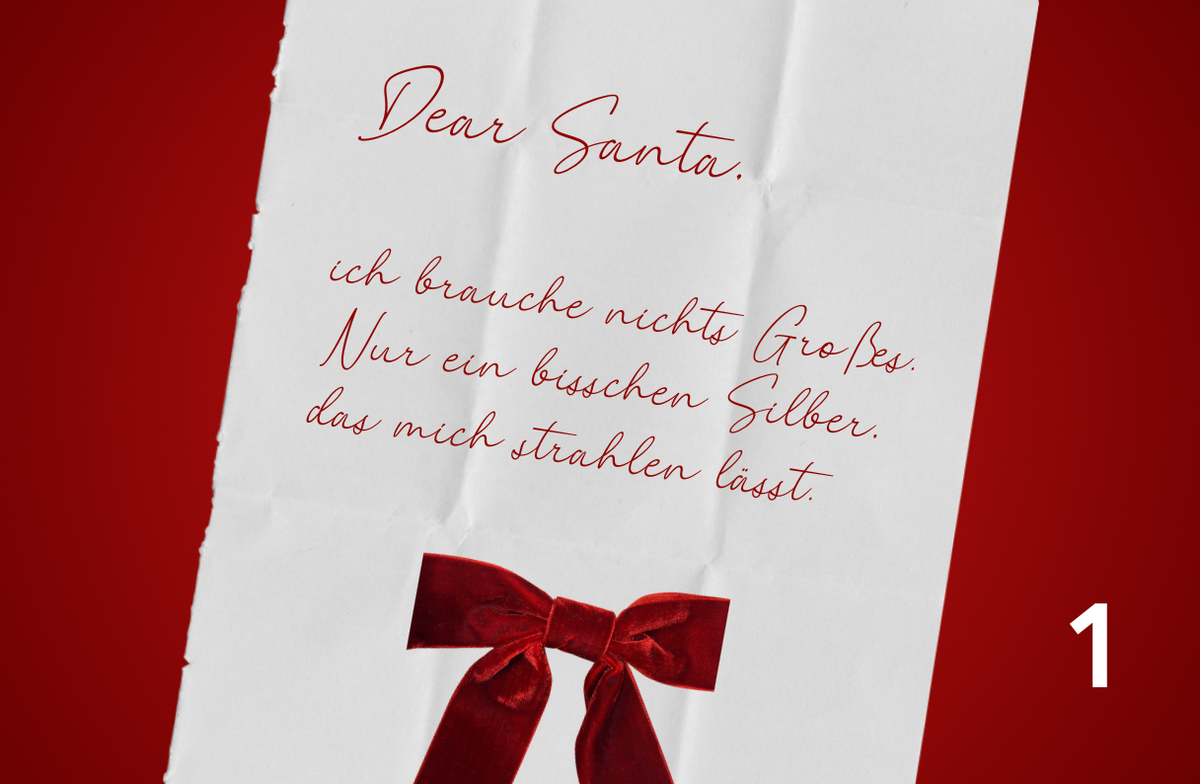 Dear Santa.
ich brauche nichts Großes.
Nur ein bisschen Silber.
das mich strahlen lässt.
1